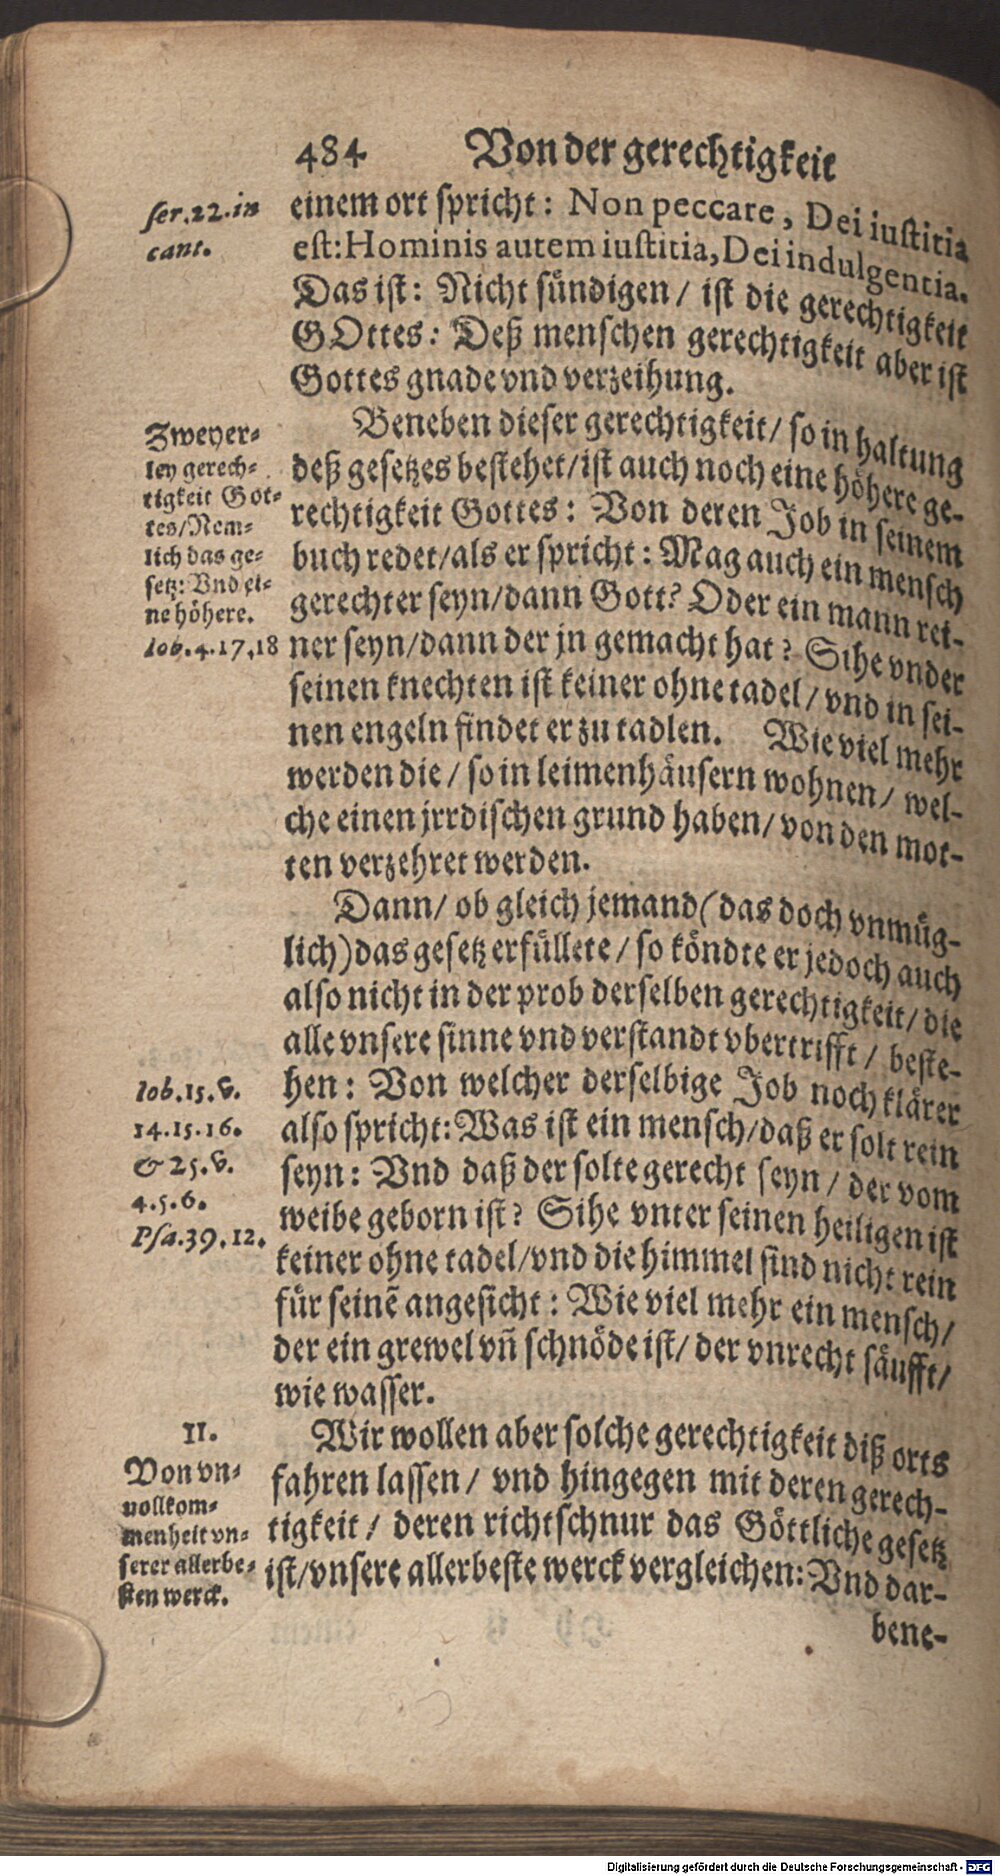 484 Von der gerechtigkeit
ser.22.in
cant.
einem ort spricht: Non peccare, Dei iustitia
est: Hominis autem iustitia, Dei indulgentia.
Das ist: Nicht sündigen/ ist die gerechtigkeit
GOttes: Deß menschen gerechtigkeit aber ist
Gottes gnade vnd verzeihung.
Zweyer-
ley gerech-
tigkeit Got-
tes/Nem-
lich das ge-
setz: Vnd ei-
ne höhere.
Iob.4.17.18
Beneben dieser gerechtigkeit/ so in haltung
deß gesetzes bestehet/ist auch noch eine höhere ge-
rechtigkeit Gottes: Von deren Job in seinem
buch redet/als er spricht: Mag auch ein mensch
gerechter seyn/dann Gott? Oder ein mann rei-
ner seyn/dann der jn gemacht hat? Sihe vnder
seinen knechten ist keiner ohne tadel/ vnd in sei-
nen engeln findet er zu tadlen. Wie viel mehr
werden die/ so in leimenhäusern wohnen/ wel-
che einen jrrdischen grund haben/ von den mot-
ten verzehret werden.
Dann/ ob gleich jemand (das doch vnmüg-
lich) das gesetz erfüllete/ so köndte er jedoch auch
also nicht in der prob derselben gerechtigkeit/ die
alle vnsere sinne vnd verstandt vbertrifft/ beste-
hen: Von welcher derselbige Job noch klärer
also spricht: Was ist ein mensch/daß er solt rein
seyn: Vnd daß der solte gerecht seyn/ der vom
weibe geborn ist? Sihe vnter seinen heiligen ist
keiner ohne tadel/vnd die himmel sind nicht rein
für seinē angesicht: Wie viel mehr ein mensch/
der ein grewel vñ schnöde ist/ der vnrecht säufft/
wie wasser.
Iob.15.v.
14.15.16.
& 25.v.
4.5.6.
Psa.39.12.
II.
Von vn-
vollkom-
menheit vn-
serer allerbe-
sten werck.
Wir wollen aber solche gerechtigkeit diß orts
fahren lassen/ vnd hingegen mit deren gerech-
tigkeit/ deren richtschnur das Göttliche gesetz
ist/vnsere allerbeste werck vergleichen: Vnd dar-
bene-
Digitalisierung gefördert durch die Deutsche Forschungsgemeinschaft - DFG